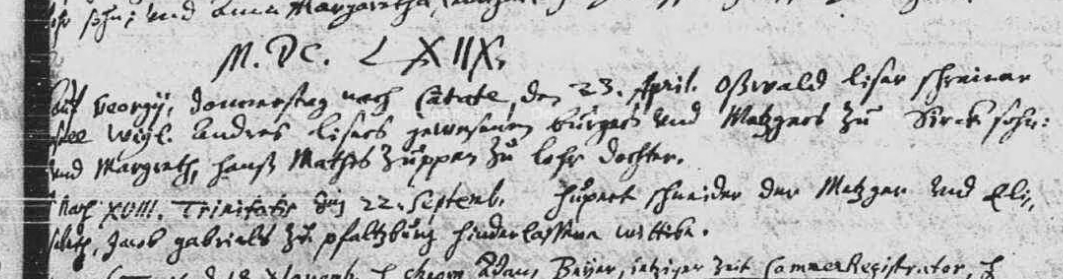 sohn, und Anna Margaretha
M. DC. LXIIX.
Auff Georgij, donnerstag nach Cantate, den 23. April. Oßwald liser schreiner
weil. Andres lisers gewesenen burgers und Metzgers zu Sirck sohn:
und Margreth, Hanß Mathis Zuppen zu lohr dochter.
Nach XVIII. Trinitatis den 22. Septemb. Hupert schneider der Metzger und Eli,
sabeth, Jacob gabriels zu pfaltzburg hinderlassene wittibe.
Adam Beyer, jetziger Zeit CammerRegistrator,